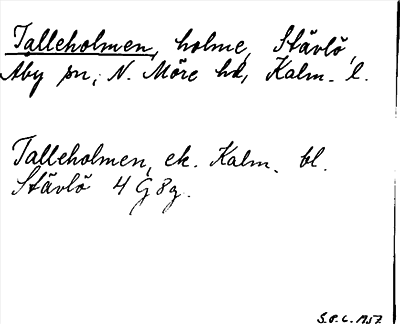 Talleholmen, holme, Stävlö,
Åby sn, N. Möre hd, Kalm. l.
Talleholmen, ek. Kalm. bl.
Stävlö 4 G 8 g.
S.P.C. 1957